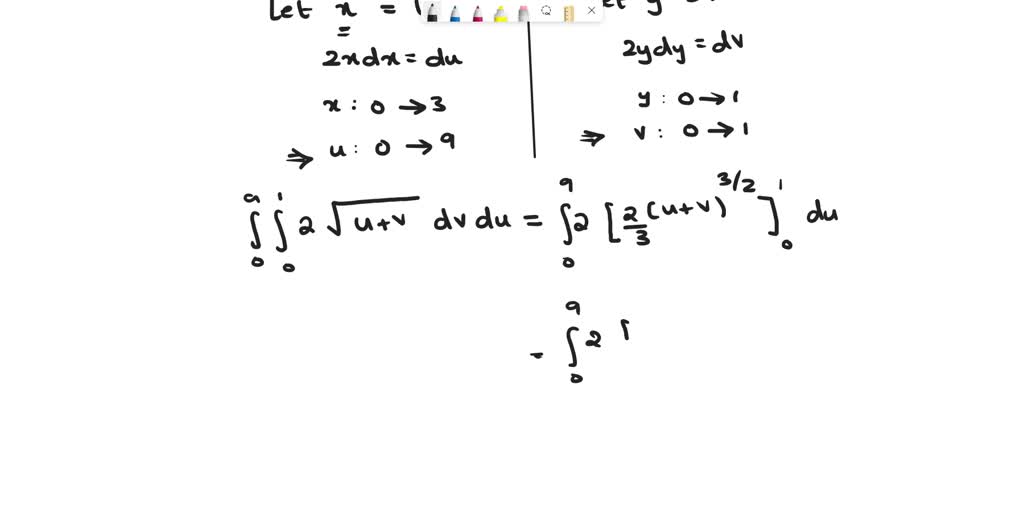 Let x =
2xdx = du
x : 0 → 3
⇒ u : 0 → 9
y
2ydy = dv
y : 0 → 1
⇒ v : 0 → 1
∫₀⁹ ∫₀¹ 2 √(u+v) dv du = ∫₀⁹ 2 [2/3 (u+v)^3/2]₀¹ du
- ∫₀⁹ 2 [